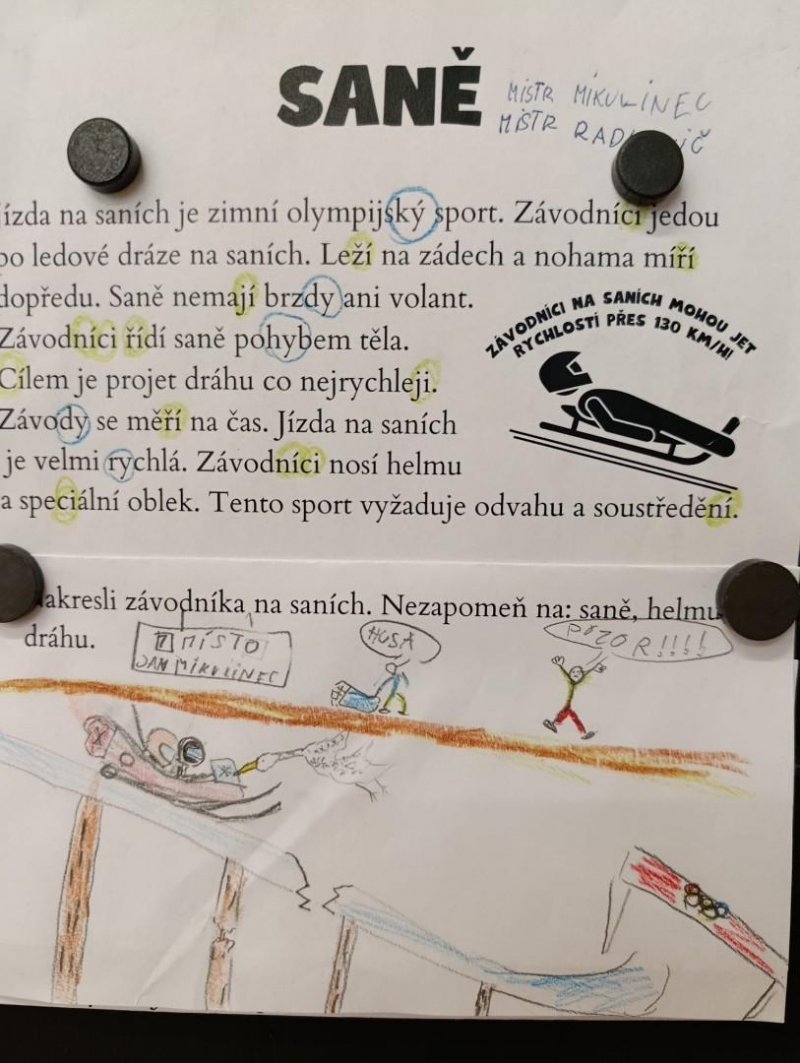 SANĚ
MISTR MIKULINEC
MISTR
Jízda na saních je zimní olympijský sport. Závodníci jedou
po ledové dráze na saních. Leží na zádech a nohama míří
dopředu. Saně nemají brzdy ani volant.
ZÁVODNÍCI NA SANÍCH MOHOU JET
RYCHLOSTÍ PŘES 130 KM/H!
Závodníci řídí saně pohybem těla.
Cílem je projet dráhu co nejrychleji.
Závody se měří na čas. Jízda na saních
je velmi rychlá. Závodníci nosí helmu
a speciální oblek. Tento sport vyžaduje odvahu a soustředění.
Nakresli závodníka na saních. Nezapomeň na: saně, helmu
dráhu.
MÍSTO
JAN MIKULINEC
HUSA
POZOR!!!!